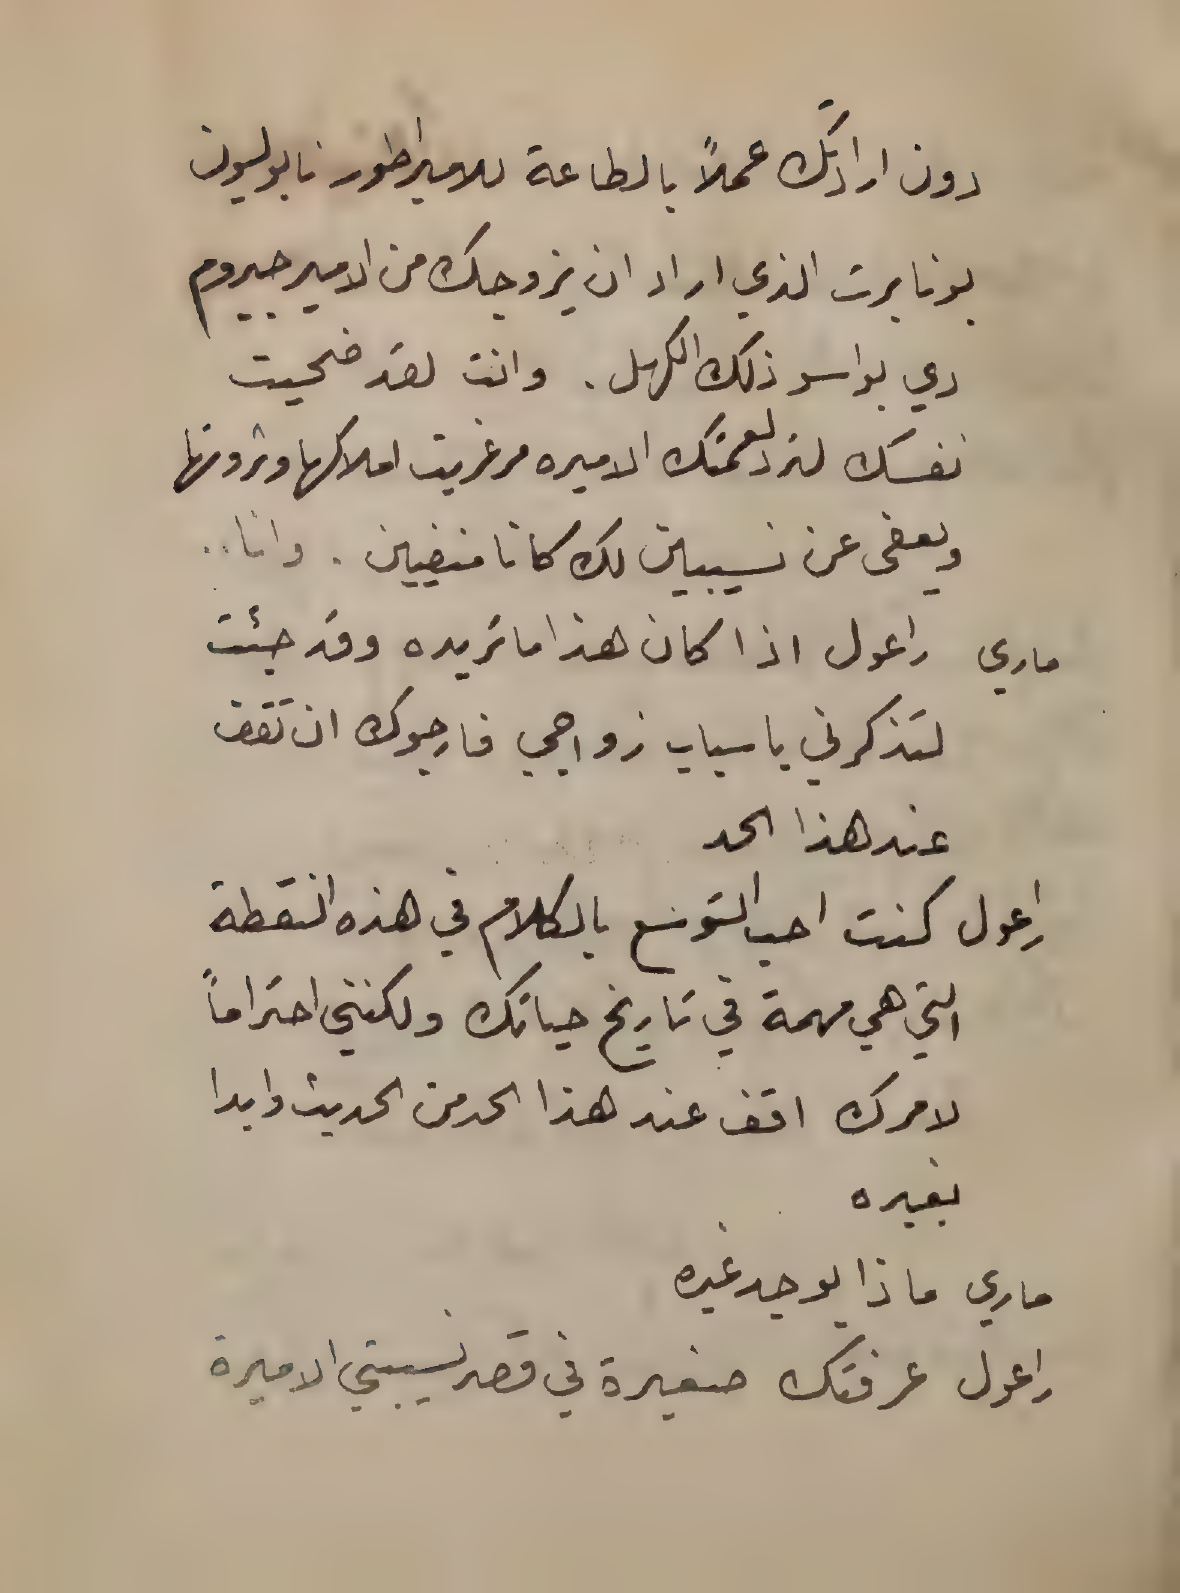 دون ارادتك عملاً بالطاعة للامبراطور نابوليون
بونابرت الذي اراد ان يزوجك من الامير جيروم
دي بواسو ذلك الكهل . وانت لقد ضحيت
نفسك لترد لعمتك الاميره مرغريت املاكها وثروتها
ويعفى عن نسيبين لك كانا منفيين . وانا..
ماري راعول اذا كان هذا ما تريده وقد جئت
لتذكرني باسباب زواجي فارجوك ان تقف
عند هذا الحد
راعول كنت احب التوسع بالكلام في هذه النقطة
التي هي مهمة في تاريخ حياتك ولكنني احتراماً
لامرك اقف عند هذا الحد من الحديث وابدا
بغيره
ماري ماذا يوجد غيره
راعول عرفتك صغيرة في قصر نسيبتي الاميرة